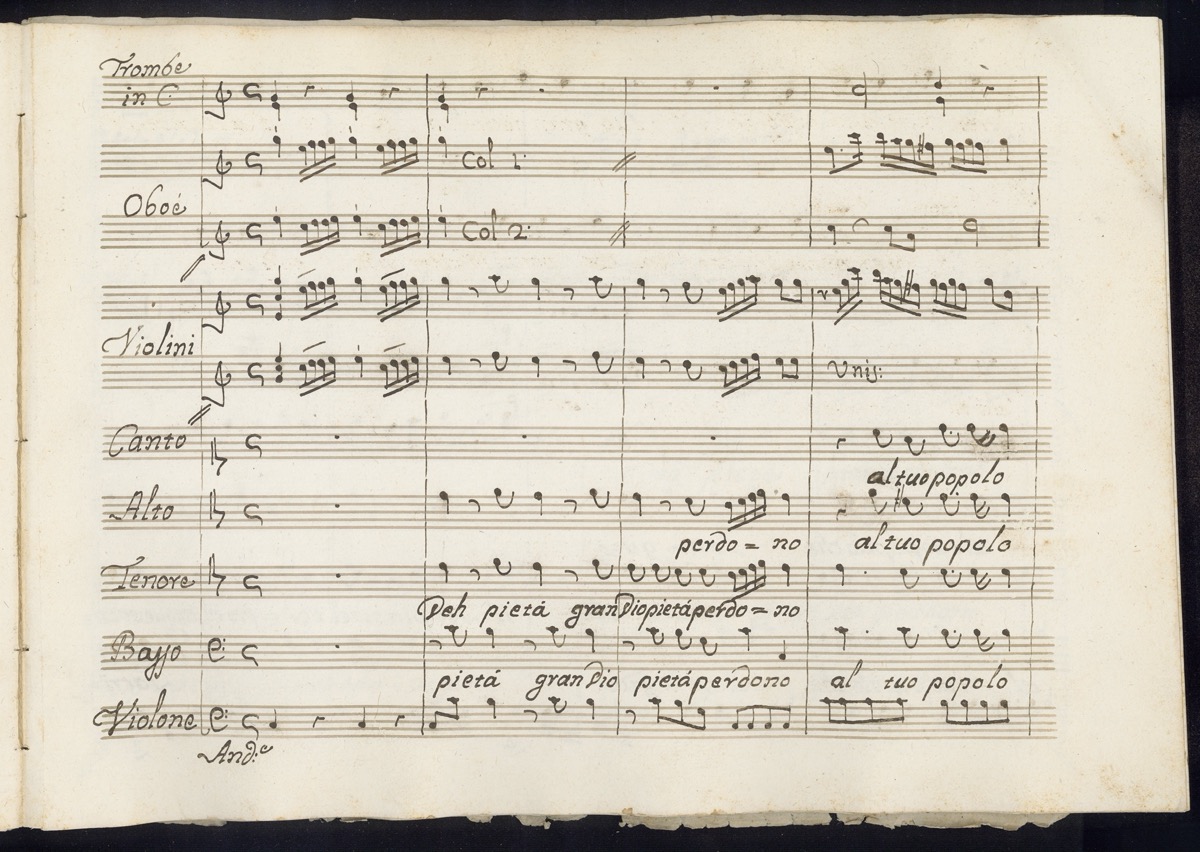 Trombe
in C
Col 1:
Oboé
Col 2:
Violini
Unis:
Canto
al tuo popolo
Alto
perdo = no al tuo popolo
Tenore
Deh pietá gran Dio pietá perdo = no
Basso
pietá gran Dio pietá perdono al tuo popolo
Violone
And:e